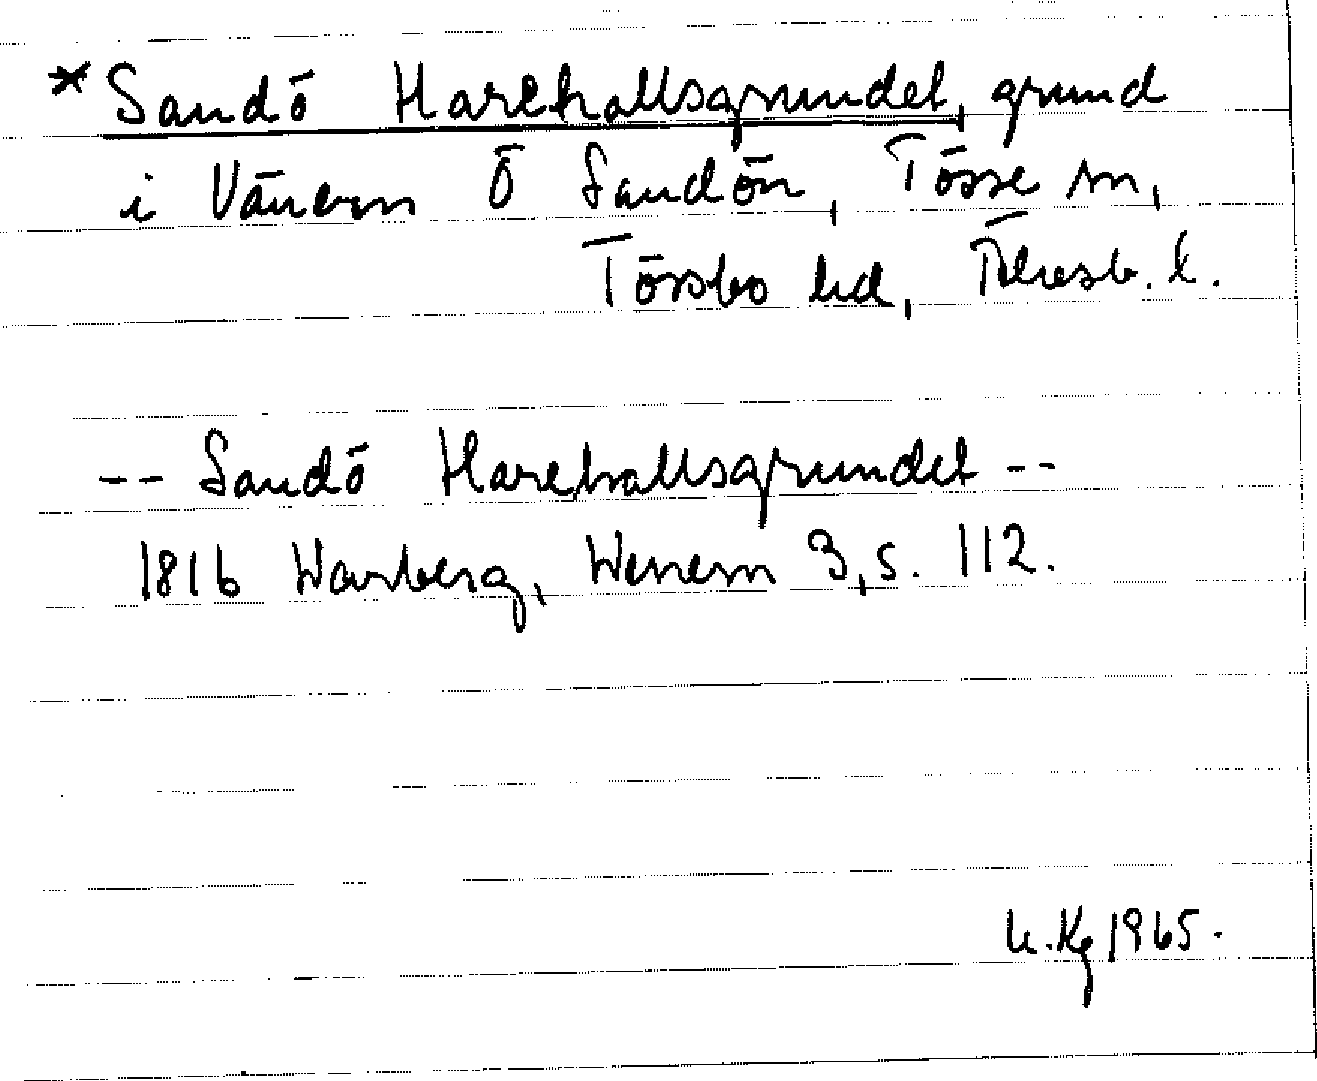 *Sandö Harehallsgrundet, grund
i Vänern Ö Sandön, Tösse sn,
Tössbo hd, Älvsb. l.
-- Sandö Harehallsgrundet --
1816 Warberg, Wenern 3, s. 112.
Kg 1965.